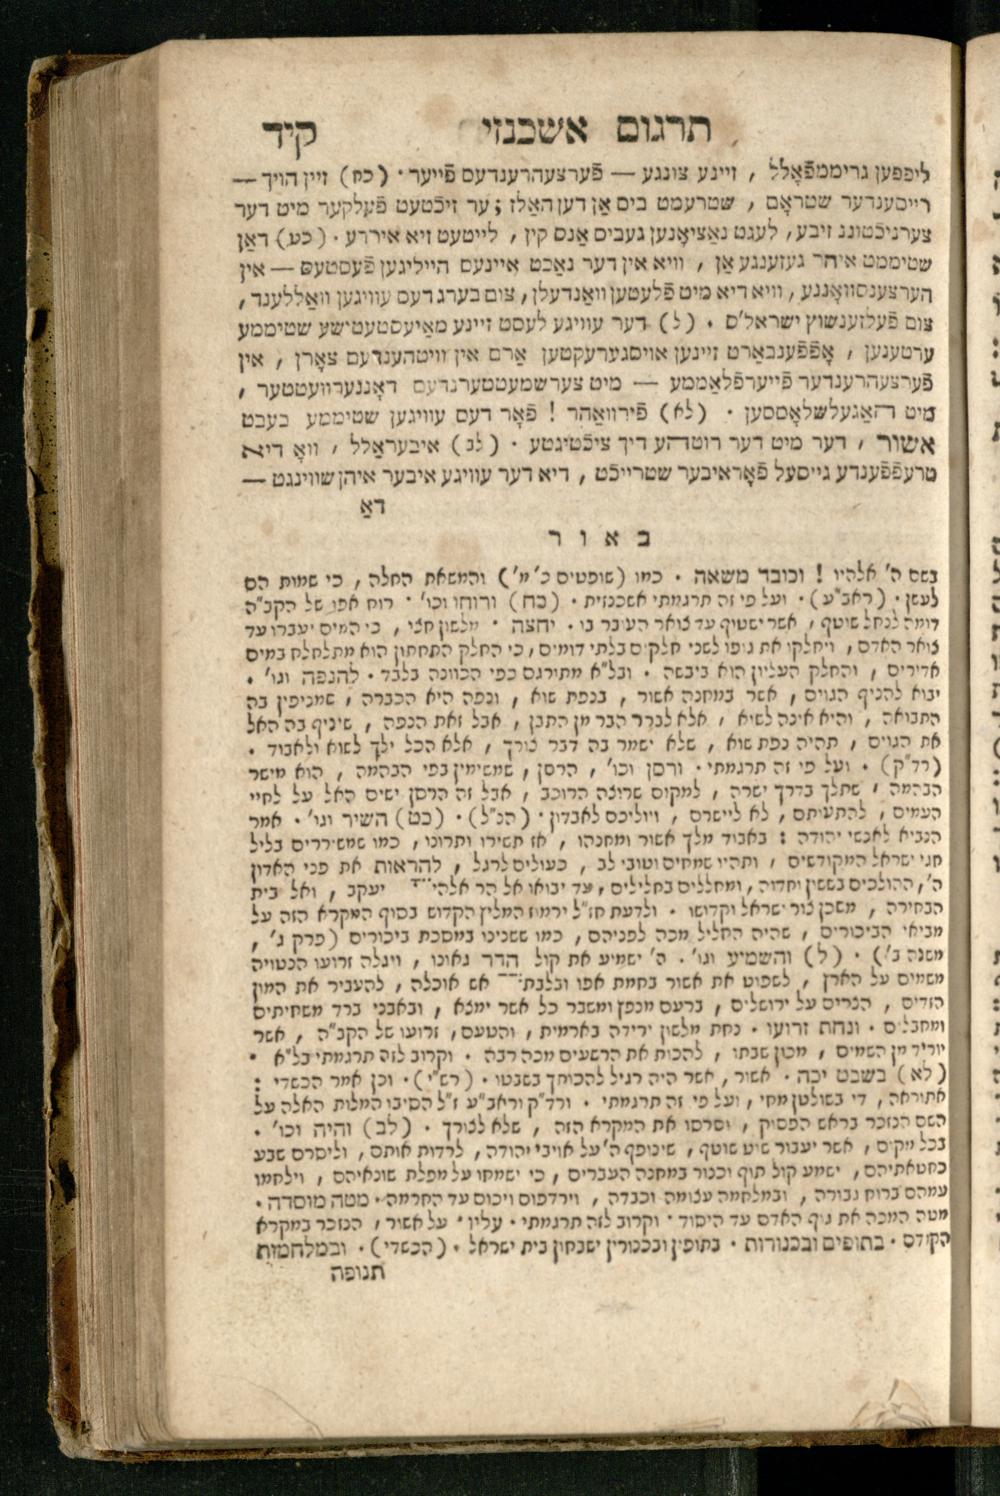 תרגום אשכנזי קיד
ליפפען גריממפֿאָלל , זיינע צונגע — פֿערצעהרענדעס פֿייער · (כח) זיין הויך —
רייסענדער שטראָם , שטרעמט ביס אַן דען האַלז ; ער זיכֿטעט פֿעלקער מיט דער
צערניכֿטונג זיבע , לעגט נאַציאָנען געביס אַנס קין , לייטעט זיא איררע · (כט) דאַן
שטיממט איהר געזענגע אַן , וויא אין דער נאַכט איינעס הייליגען פֿעסטעס — אין
הערצענסוואָננע , וויא דיא מיט פֿלעטען וואַנדעלן , צום בערג דעס עוויגען וואַללענד ,
צום פֿעלזענשוץ ישראל'ס · (ל) דער עוויגע לעסט זיינע מאַיעסטעטישע שטיממע
ערטענען , אָפֿפֿענבאַרט זיינען אויסגערעקטען אַרם אין וויטהענדעם צאָרן , אין
פֿערצעהרענדער פֿייערפֿלאַממע — מיט צערשמעטטערנדעם דאָננערוועטטער ,
מיט האַגעלשלאָססען · (לא) פֿירוואַהר ! פֿאָר דעס עוויגען שטיממע בעבט
אשור , דער מיט דער רוטהע דיך ציכֿטיגטע · (לב) איבעראַלל , וואָ דיא
טרעפֿפֿענדע גייסעל פֿאָראיבער שטרייכֿט , דיא דער עוויגע איבער איהן שווינגט —
דאַ
באור
בשם ה' אלהיו ! וכובד משאה · כמו (שופטים כ' מ') והמשאת החלה , כי שמות הם
לעשן · (ראב"ע) · ועל פי זה תרגמתי אשכנזית · (כח) ורוחו וכו' · רוח אפו של הקב"ה
דומה לנחל שוטף , אשר ישטוף עד צואר העובר בו · יחצה · מלשון חצי , כי המים יעברו עד
צואר האדם , ויחלקו את גופו לשני חלקים בלתי דומים , כי החלק התחתון הוא מתלחלח במים
אדירים , והחלק העליון הוא ביבשה · ובל"א מתורגם כפי הכוונה בלבד · להנפה וגו' ·
יבוא להניף הגוים , אשר במחנה אשור , בנפת שוא , ונפה היא הכברה , שמניפין בה
התבואה , והיא אינה לשוא , אלא לברר הבר מן התבן , אבל זאת הנפה , שיניף בה האל
את הגוים , תהיה נפת שוא , שלא ישמר בה דבר צורך , אלא הכל ילך לשוא ולאבוד ·
(רד"ק) · ועל פי זה תרגמתי · ורסן וכו' , הרסן , שמשימין בפי הבהמה , הוא מישר
הבהמה , שתלך בדרך ישרה , למקום שרוצה הרוכב , אבל זה הרסן ישים האל על לחיי
העמים , להתעותם , לא ליישרם , ויוליכם לאבדון · (הנ"ל) · (כט) השיר וגו' · אמר
הנביא לאנשי יהודה : באבוד מלך אשור ומחנהו , אז תשירו ותרונו , כמו שמשוררים בליל
חגי ישראל המקודשים , ותהיו שמחים וטובי לב , כעולים לרגל , להראות את פני האדון
ה' , ההולכים בששון וחדוה , ומחללים בחלילים , עד יבואו אל הר אלהי יעקב , ואל בית
הבחירה , משכן צור ישראל וקדושו · ולדעת חז"ל ירמוז המליץ הקדוש בסוף המקרא הזה על
מביאי הביכורים , שהיה החליל מכה לפניהם , כמו ששנינו במסכת ביכורים (פרק ג' ,
משנה ב') · (ל) והשמיע וגו' · ה' ישמיע את קול הדר גאונו , ויגלה זרועו הנטויה
משמים על הארץ , לשפוט את אשור בחמת אפו ובלבת אש אוכלה , להעביר את המון
הזדים , הצרים על ירושלים , ברעם מנפץ ומשבר כל אשר ימצא , ובאבני ברד משחיתים
ומחבלים · ונחת זרועו · נחת מלשון ירידה בארמית , והטעם , זרועו של הקב"ה , אשר
יוריד מן השמים , מכון שבתו , להכות את הרשעים מכה רבה · וקרוב לזה תרגמתי בל"א ·
(לא) בשבט יכה · אשור , אשר היה רגיל להכותך בשבטו · (רש"י) · וכן אמר הכשדי :
אתוראה , די בשולטן מחי , ועל פי זה תרגמתי · ורד"ק וראב"ע ז"ל הסיבו המלות האלה על
השם הנזכר בראש הפסוק , וסרסו את המקרא הזה , שלא לצורך · (לב) והיה וכו' ·
בכל מקום , אשר יעבור שוט שוטף , שינופף ה' על אויבי יהודה , לרדות אותם , וליסרם שבע
כחטאתיהם , ישמע קול תוף וכנור במחנה העברים , כי ישמחו על מפלת שונאיהם , וילחמו
עמהם ברוח גבורה , ובמלחמה עצומה וכבדה , וירדפום ויכום עד החרמה · מטה מוסדה ·
מטה המכה את גוף האדם עד היסוד · וקרוב לזה תרגמתי · עליו · על אשור , הנזכר במקרא
הקודם · בתופים ובכנורות · בתופין ובכנורין ישבחון בית ישראל · (הכשדי) · ובמלחמות
תנופה